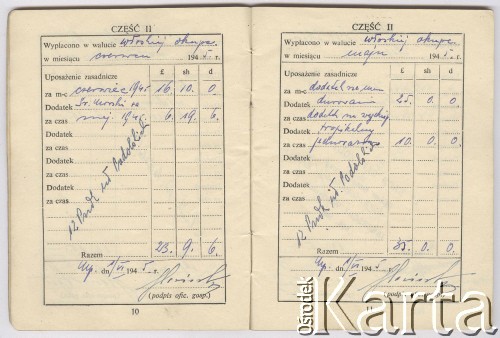 CZĘŚĆ II
Wypłacono w walucie włoskiej okupac.
w miesiącu czerwcu 1945 r.
Uposażenie zasadnicze £ sh d
za m-c czerwiec 1945 16. 10. 0.
Dodatek
za czas maj 1945 6. 19. 6.
Dodatek
za czas
Dodatek
za czas
Dodatek
za czas
12 Pułk uł. Podolskich
Razem 23. 9. 6.
dn. 1/VI 1945 r.
(podpis ofic. gosp.)
10
CZĘŚĆ II
Wypłacono w walucie włoskiej okupac.
w miesiącu maju 1945 r.
Uposażenie zasadnicze £ sh d
za m-c dodatek
Dodatek 25. 0. 0.
za czas dodatek na
Dodatek
za czas 10. 0. 0.
Dodatek
za czas
Dodatek
za czas
12 Pułk uł. Podolskich
Razem 35. 0. 0.
dn. 1945 r.
(podpis ofic. gosp.)
11
Ośrodek
Karta